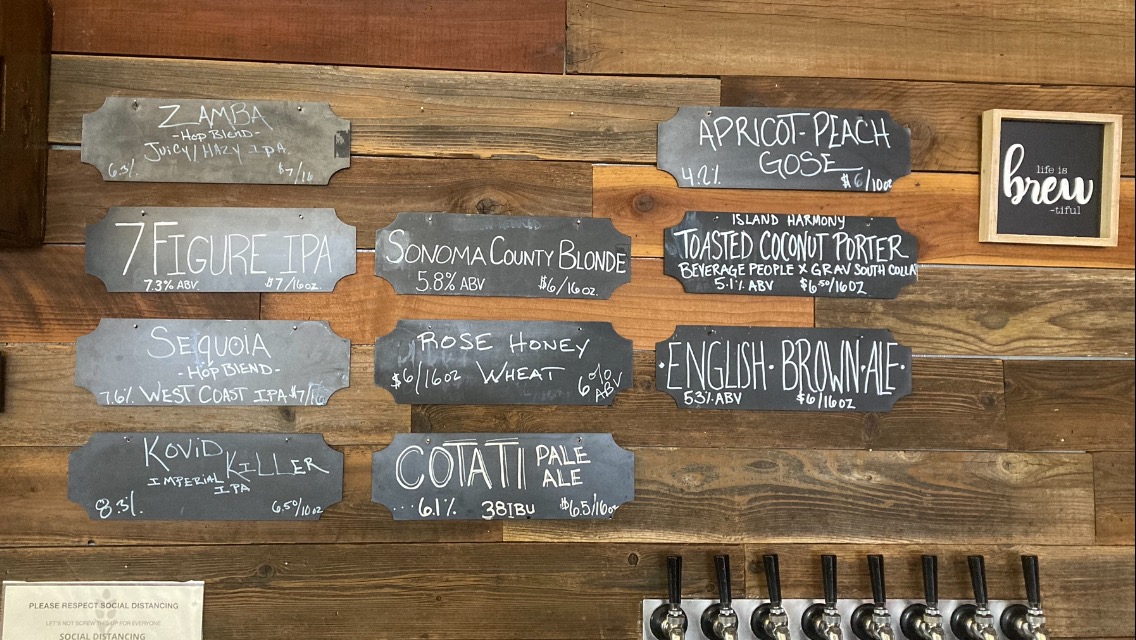 ZAMBA
-HOP BLEND-
JUICY/HAZY IPA
6.3% $7/16
7 FIGURE IPA
7.3% ABV $7/16oz
SEQUOIA
-HOP BLEND-
7.6% WEST COAST IPA $7/16
KOVID KILLER
IMPERIAL
IPA
8.3% 6.50/10oz
SONOMA COUNTY BLONDE
5.8% ABV $6/16oz.
ROSE HONEY
$6/16oz WHEAT 6% ABV
COTATI PALE ALE
6.1% 38IBU $6.5/16oz
APRICOT-PEACH
GOSE
4.2% $6/10oz
ISLAND HARMONY
TOASTED COCONUT PORTER
BEVERAGE PEOPLE X GRAV SOUTH COLLA
5.1% ABV $6.50/16OZ
·ENGLISH·BROWN·ALE·
5.3% ABV $6/16oz
life is
brew
-tiful
PLEASE RESPECT SOCIAL DISTANCING
LET'S NOT SCREW THIS UP FOR EVERYONE
SOCIAL DISTANCING